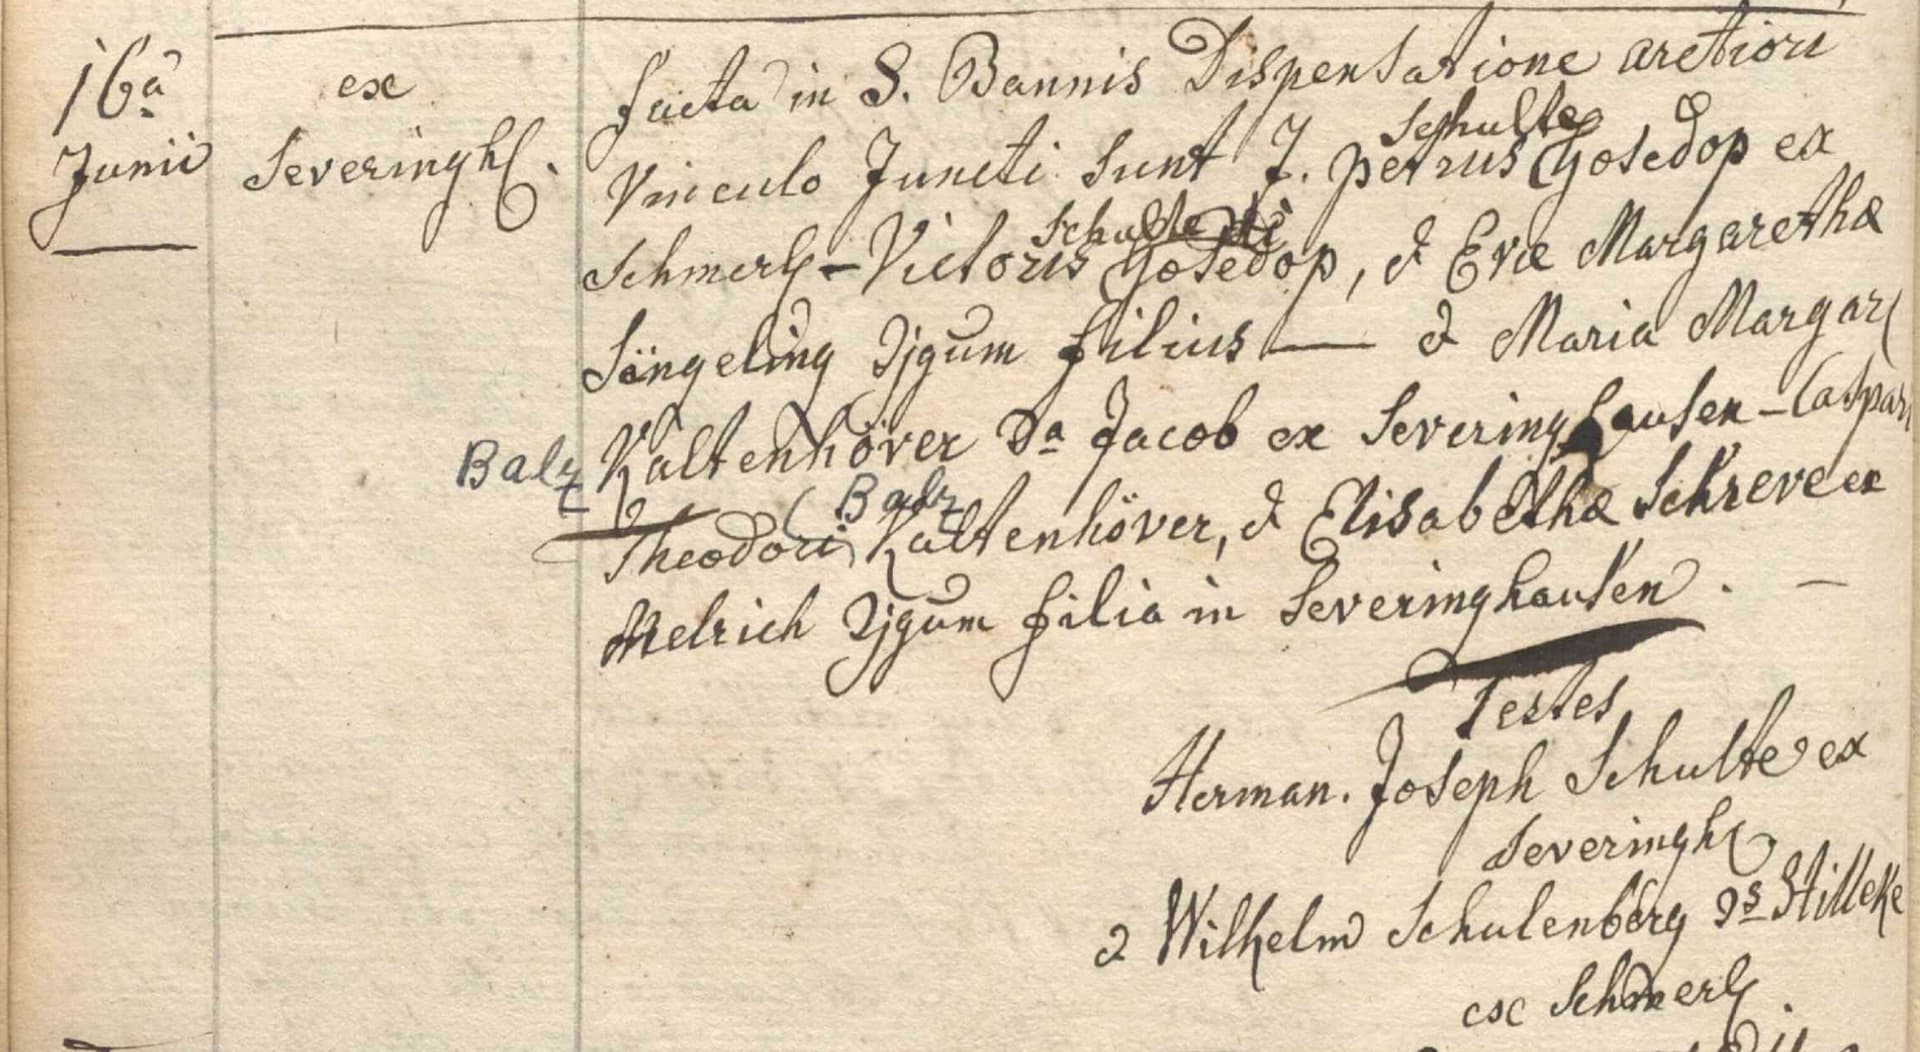 16ta
Junii
ex
Severingh.
facta in S. Bannis Dispensatione arctiori
Schulte
Vinculo Juncti sunt J. petrus Gosedop ex
Schulte
Schmerl – Victoris Gosedop, & Evæ Margarethæ
Söngeling Cjgum filius — & Maria Margar
Balz Kaltenhöver Da Jacob ex Severinghausen – Caspar
( Balz
Theodori Kaltenhöver, & Elisabethæ Schreve ex
Melrich Cjgum filia in Severinghausen . —
Testes
Herman. Joseph Schulte ex
Severingh
& Wilhelm Schulenberg Ds Stilleke
ex Schmerl .